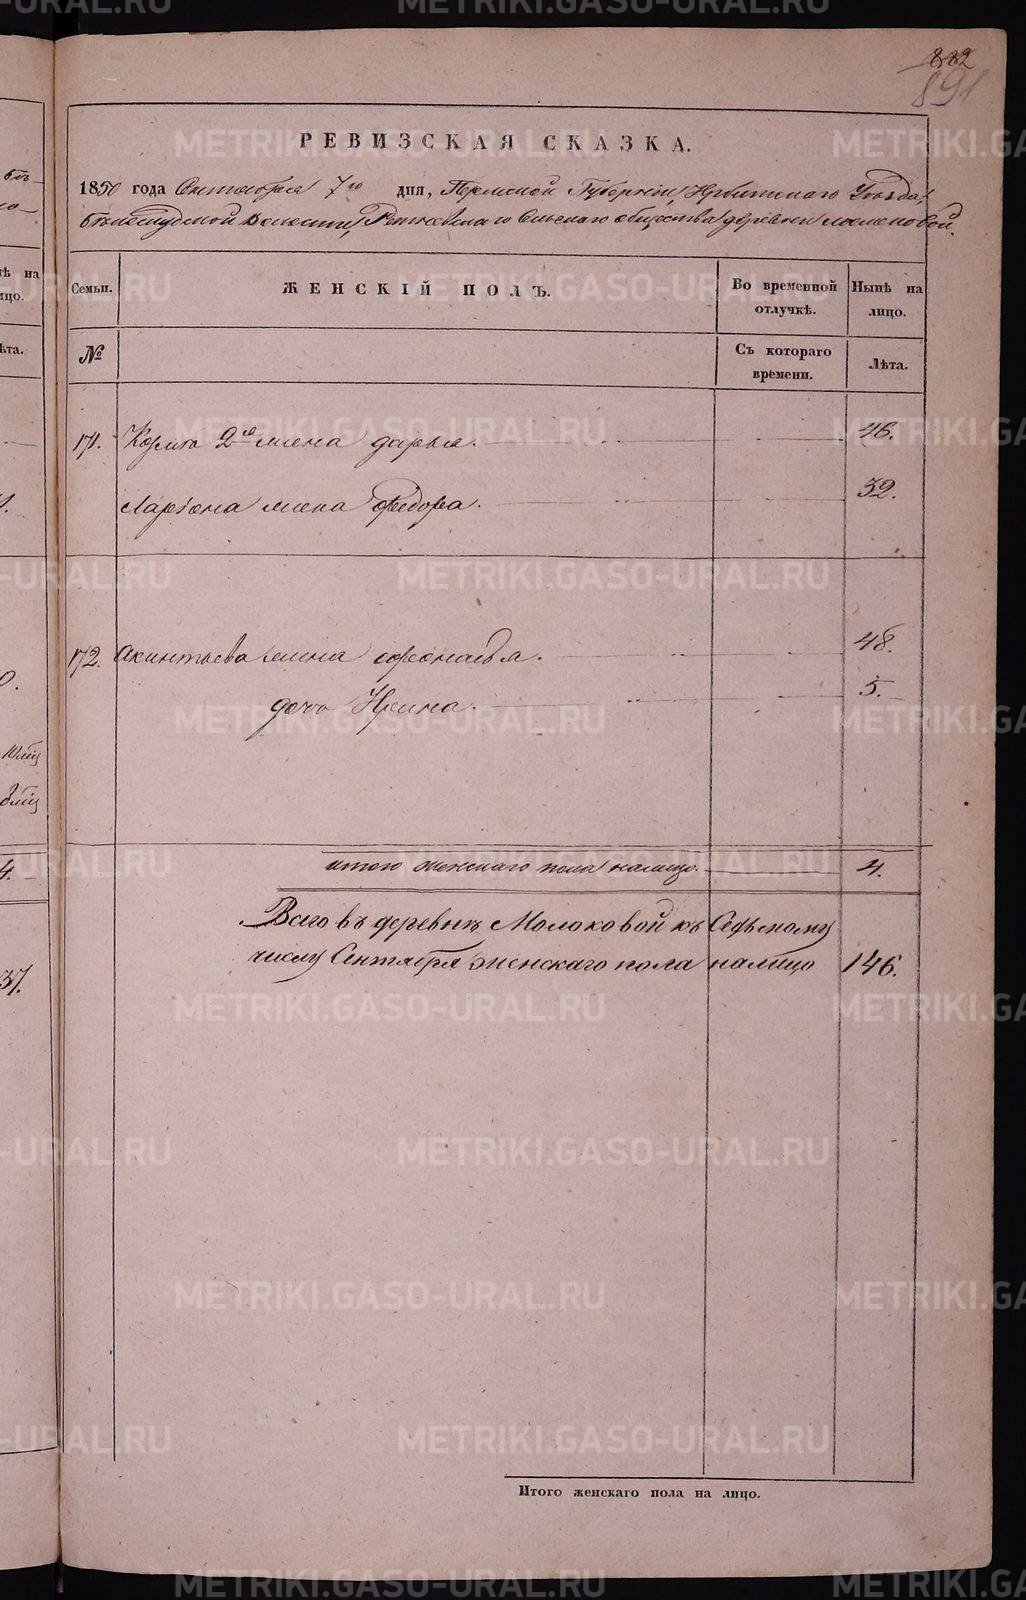 882
891
РЕВИЗСКАЯ СКАЗКА.
1850 года Сентября 7го дня, Пермской Губернии, Ирбитскаго Уезда,
Белослудской Волости, Сельскаго общества деревни Молоковой.
Семьи.
ЖЕНСКІЙ ПОЛЪ.
Во временной отлучкѣ.
Нынѣ на лицо.
№
Съ котораго времени.
Лѣта.
171. Козмы 2я жена дарья. 46.
Ларіона жена Федора. 32.
172. Акинтьева жена Афонасья. 48.
дочь Ирина. 5.
итого женскаго пола налицо. 4.
Всего въ деревнѣ Молоковой къ Седьмому
числу Сентября женскаго пола налицо 146.
Итого женскаго пола на лицо.
METRIKI.GASO-URAL.RU